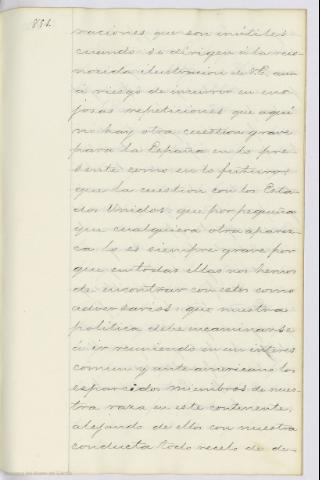 854
raciones que son inútiles
cuando se dirigen á la reco-
nocida ilustracion de V.E. aun
á riesgo de incurrir en eno
josas repeticiones que aquí
no hay otra cuestion grave
para la España en lo pre-
sente como en lo futuro
que la cuestion con los Esta-
dos Unidos: que por pequeña
que cualquiera otra aparez-
ca lo es siempre grave por
que en todas ellas nos hemos
de encontrar con estos como
adversarios: que nuestra
política debe encaminarse
á ir reuniendo en un interes
comun y ante-americano los
esparcidos miembros de nues-
tra raza en este continente,
alejando de ellos con nuestra
conducta todo recelo de de-